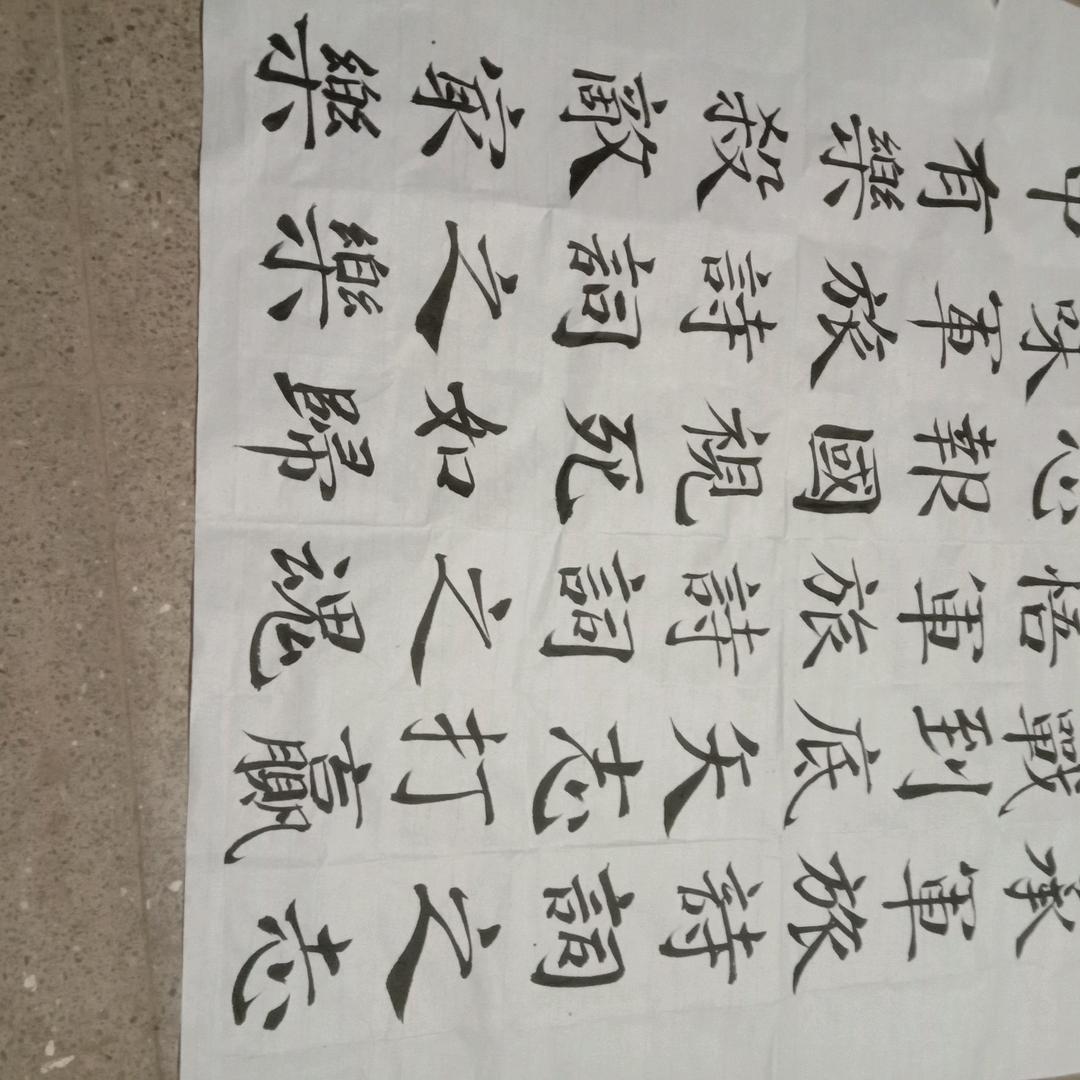 承軍旅詩詞之志
戰到底矢志打贏
悟軍旅詩詞之魂
報國視死如歸
味軍旅詩詞之樂
中有樂殺敵樂